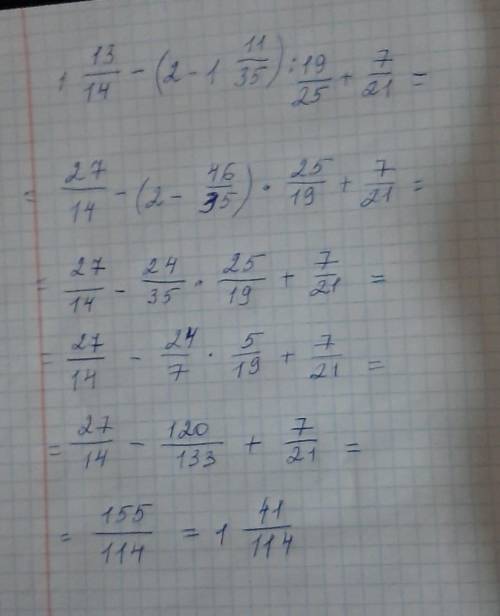 1 13/14 - (2 - 1 11/35) : 19/25 + 7/21 =
= 27/14 - (2 - 46/35) · 25/19 + 7/21 =
= 27/14 - 24/35 · 25/19 + 7/21 =
= 27/14 - 24/7 · 5/19 + 7/21 =
= 27/14 - 120/133 + 7/21 =
= 155/114 = 1 41/114